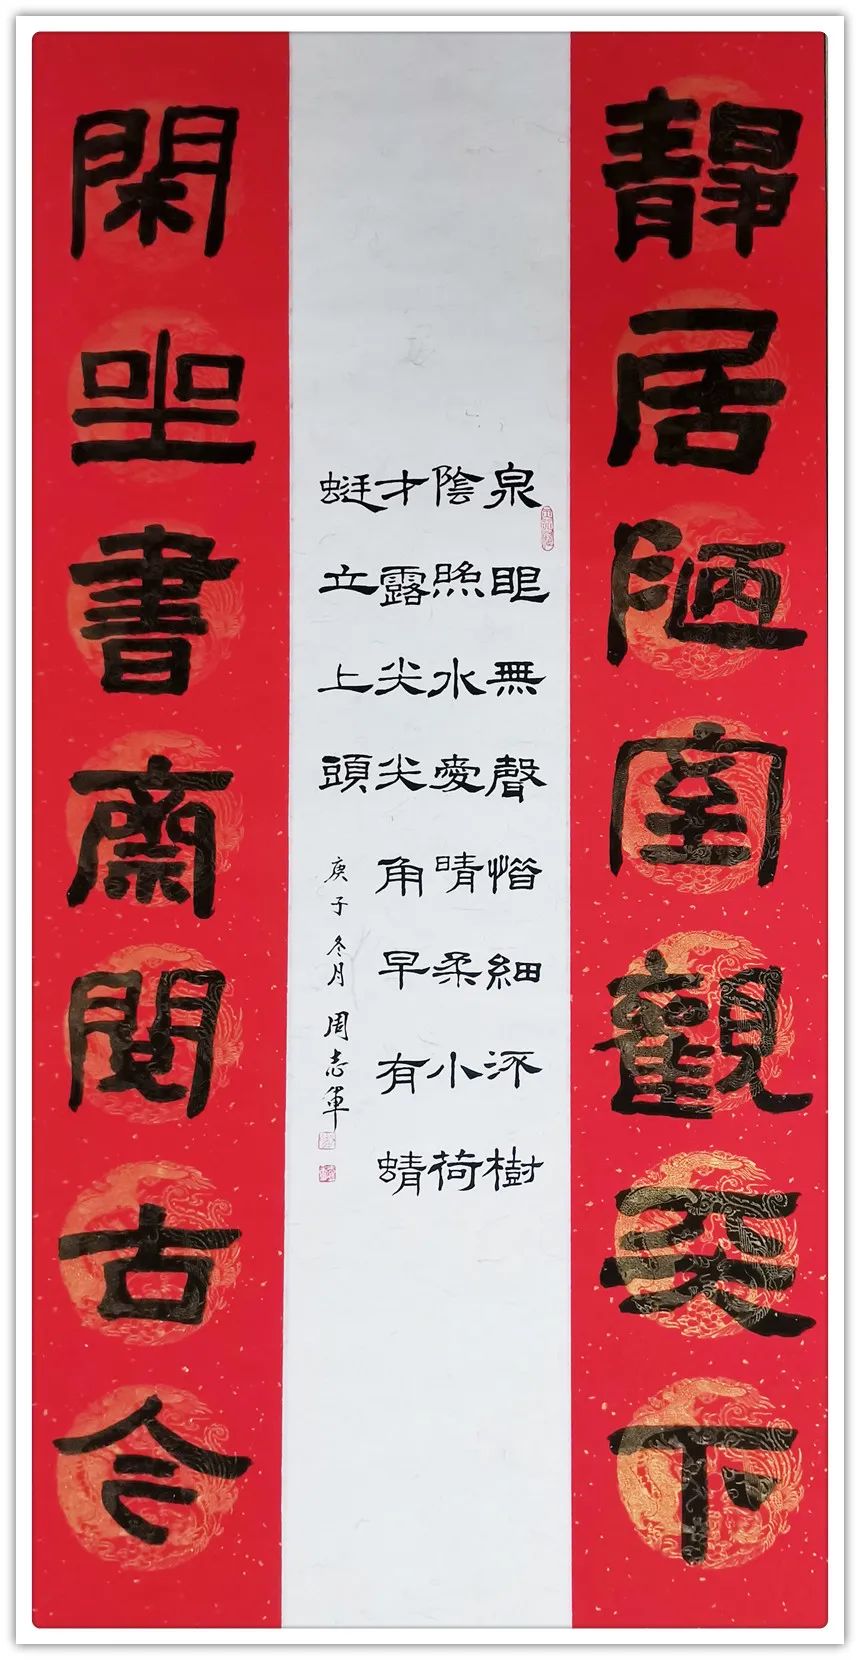 靜居陋室觀天下
泉眼無聲惜細流樹
陰照水愛晴柔小荷
才露尖尖角早有蜻
蜓立上頭
庚子冬月周志軍
閑坐書齋閱古今